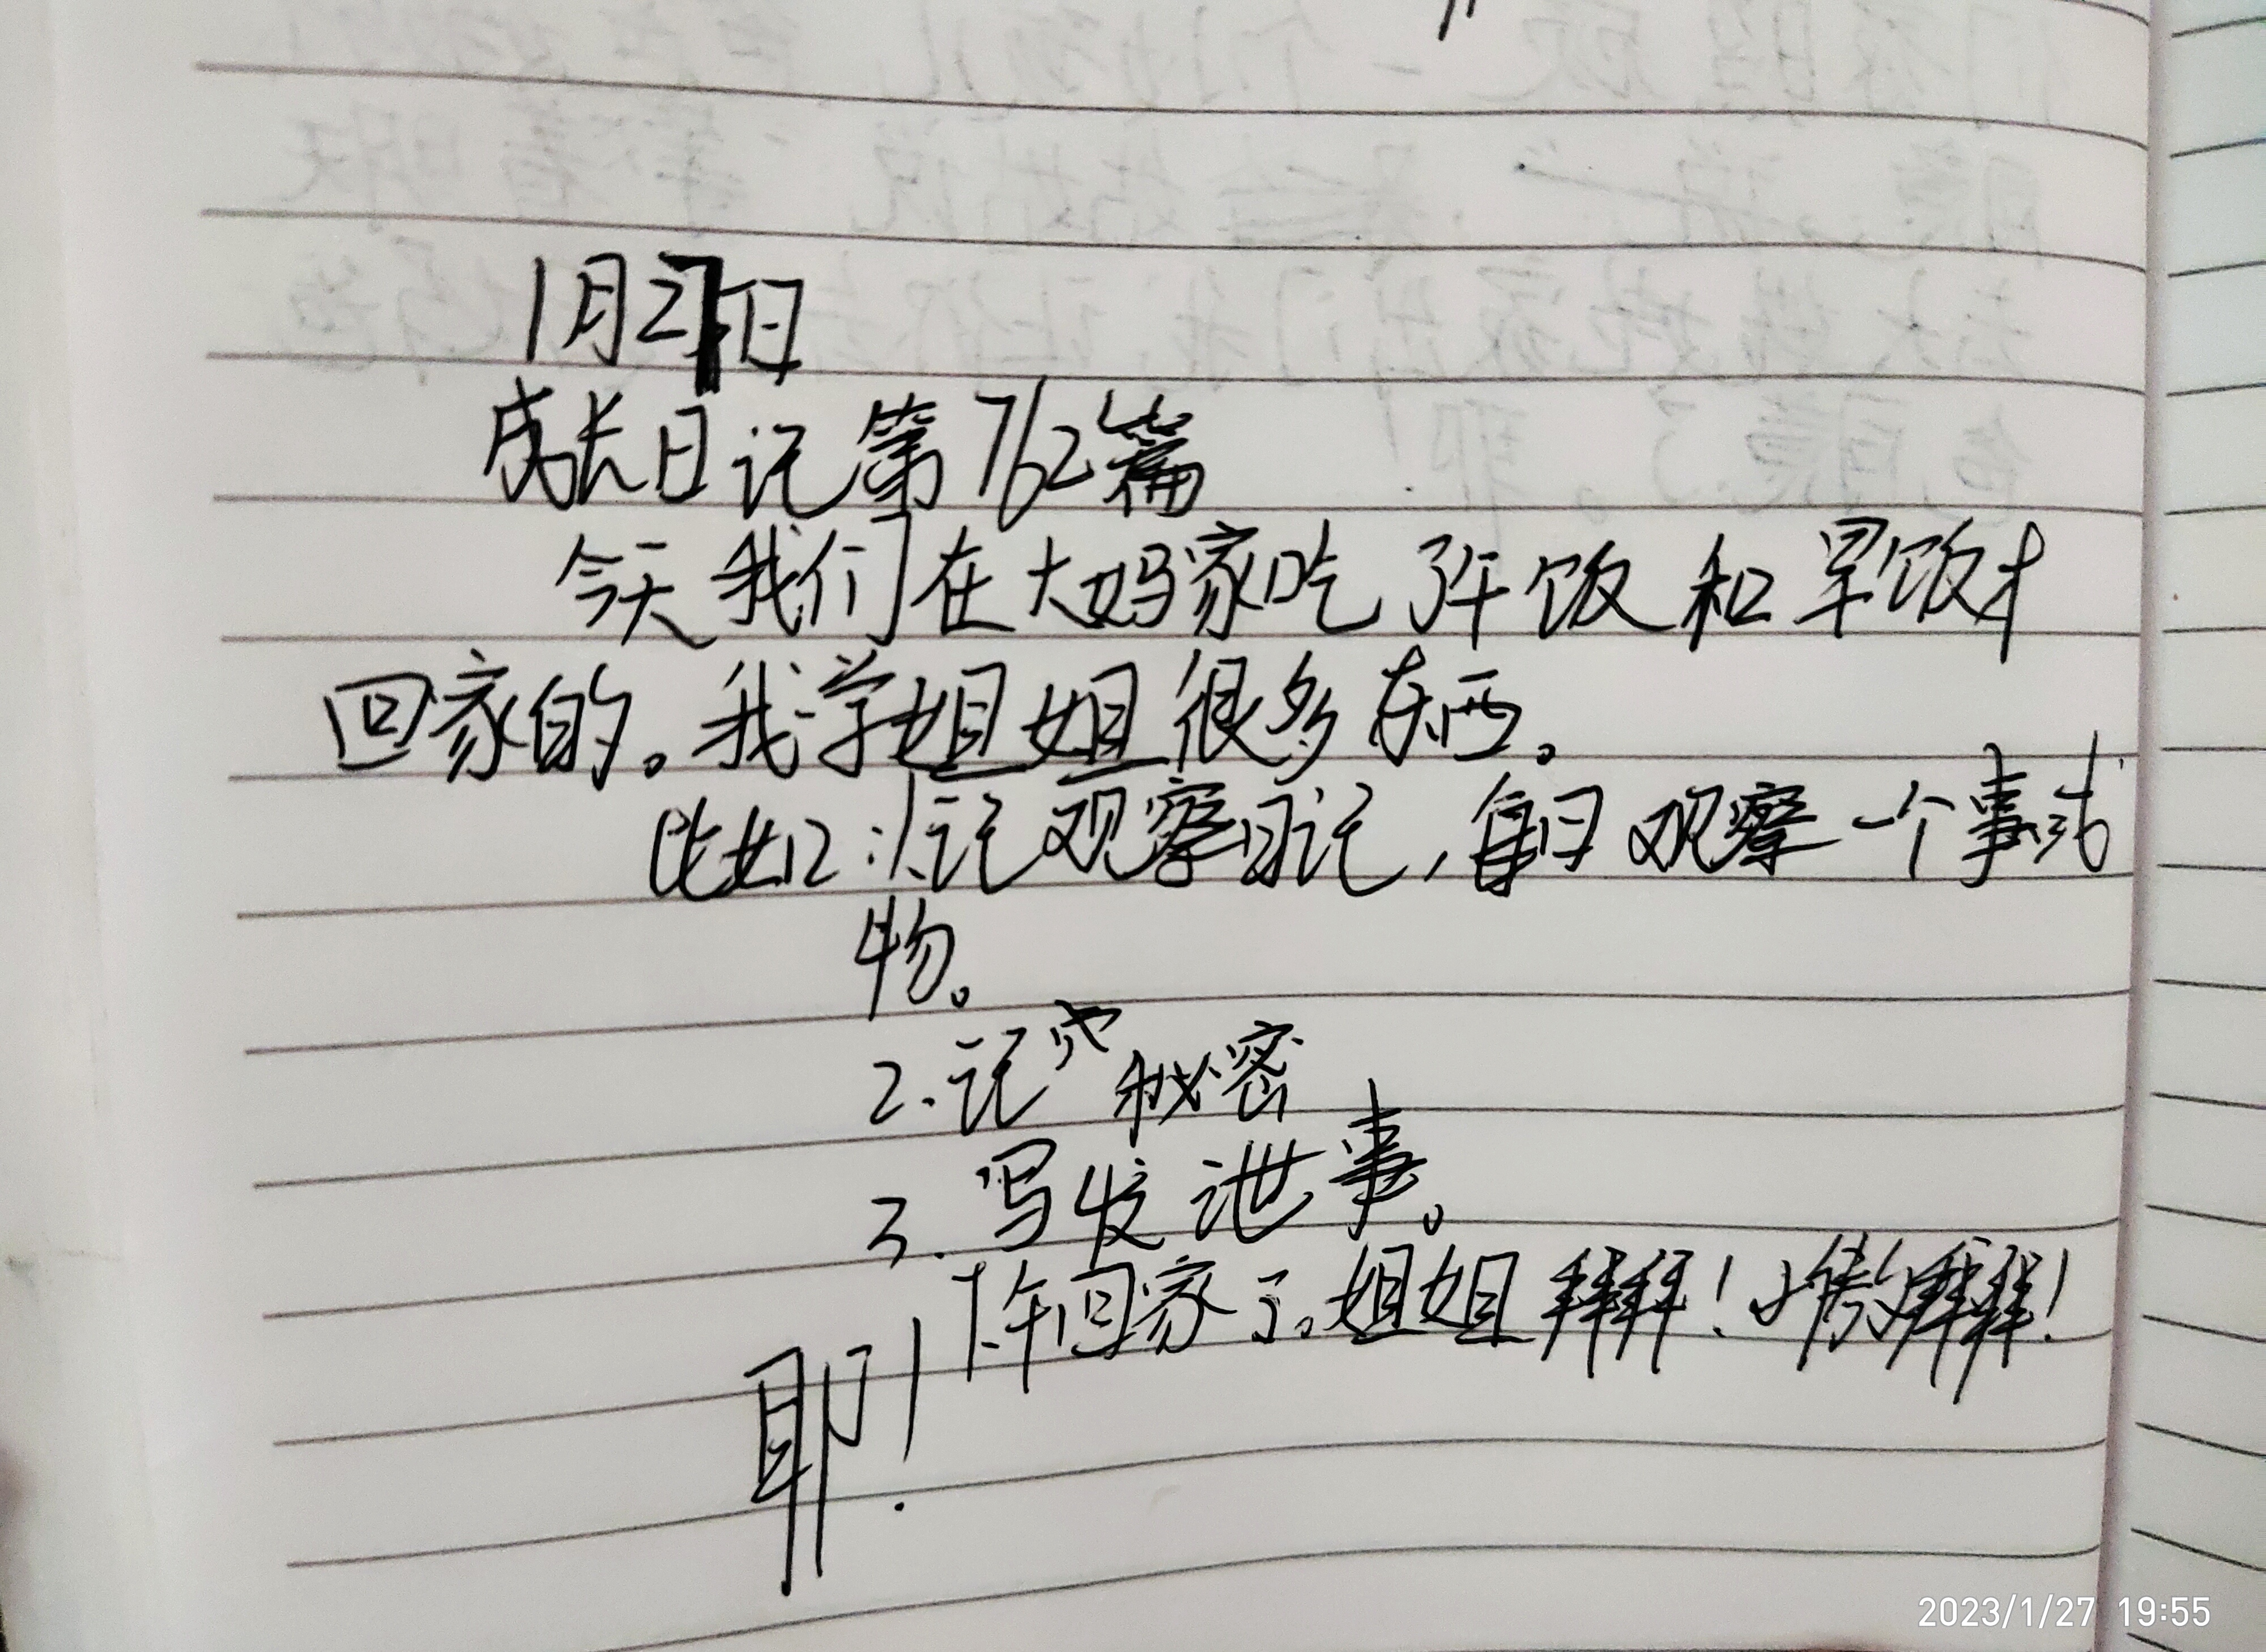 1月27日
成长日记第762篇
今天我们在大妈家吃了午饭和早饭才
回家的。我学姐姐很多东西。
比如:1.记观察日记,每日观察一个事或
物。
2.记 秘密
3.写发泄事。
下午回家了。姐姐拜拜!小 拜拜!
耶!
2023/1/27 19:55